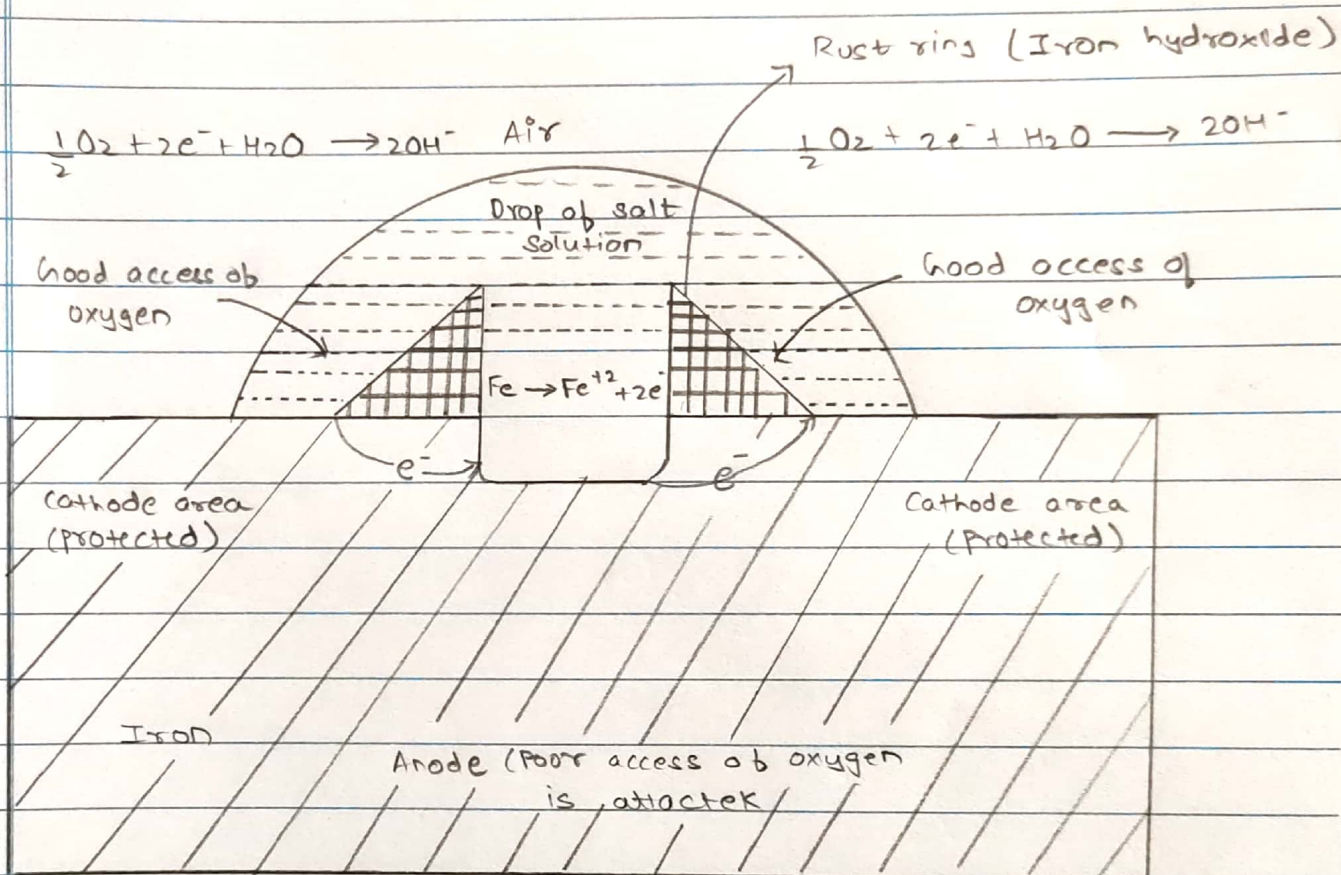 Rust ring (Iron hydroxide)
½O2 + 2e⁻ + H2O → 2OH⁻
Air
½O2 + 2e⁻ + H2O → 2OH⁻
Drop of salt
solution
Good access of
oxygen
Good access of
oxygen
Fe → Fe⁺² + 2e⁻
e⁻
e⁻
Cathode area
(protected)
Cathode area
(protected)
Iron
Anode (Poor access of oxygen
is attactek